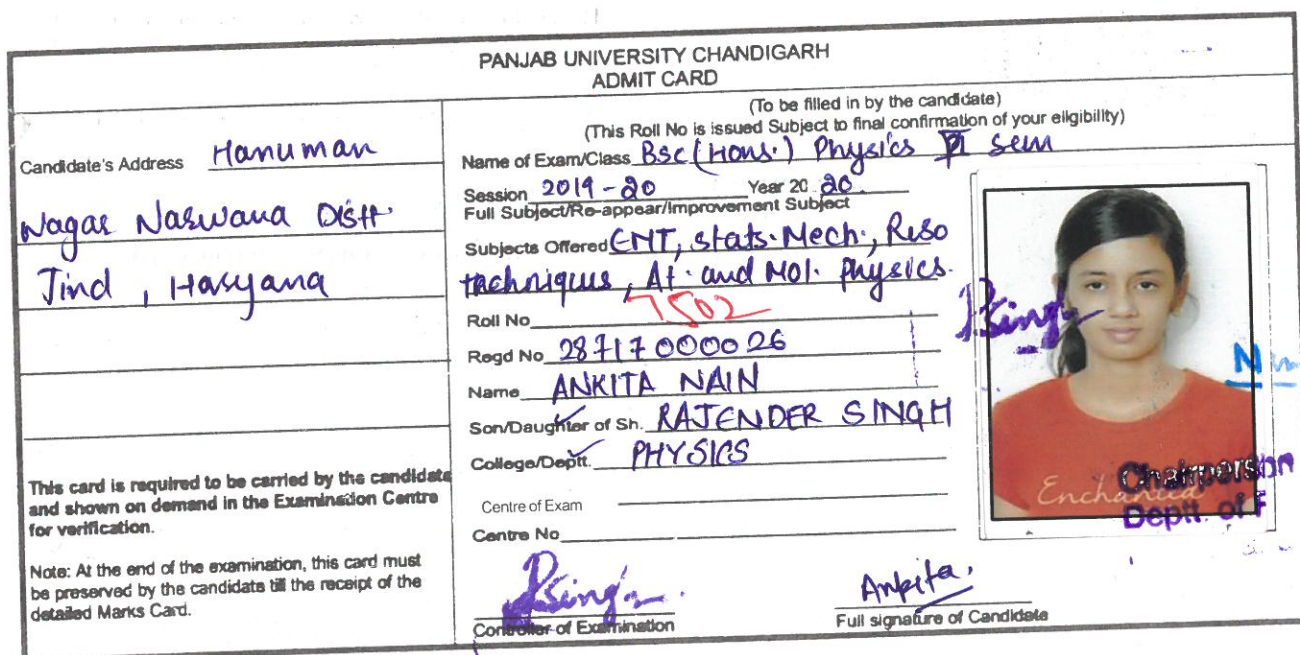 PANJAB UNIVERSITY CHANDIGARH
ADMIT CARD
Candidate's Address Hanuman
Nagar Narwana Distt.
Jind, Haryana
This card is required to be carried by the candidate
and shown on demand in the Examination Centre
for verification.
Note: At the end of the examination, this card must
be preserved by the candidate till the receipt of the
detailed Marks Card.
(To be filled in by the candidate)
(This Roll No is issued Subject to final confirmation of your eligibility)
Name of Exam/Class BSc (Hons.) Physics sem
Session 2019-20 Year 20 20.
Full Subject/Re-appear/Improvement Subject
Subjects Offered EMT, stats. Mech., Reso
techniques, At. and Mol. physics.
Roll No 7502
Regd No 28717000026
Name ANKITA NAIN
Son/Daughter of Sh. RAJENDER SINGH
College/Deptt. PHYSICS
Centre of Exam
Centre No
Controller of Examination
Ankita.
Full signature of Candidate
Enchanted
Chairperson
Deptt. of P